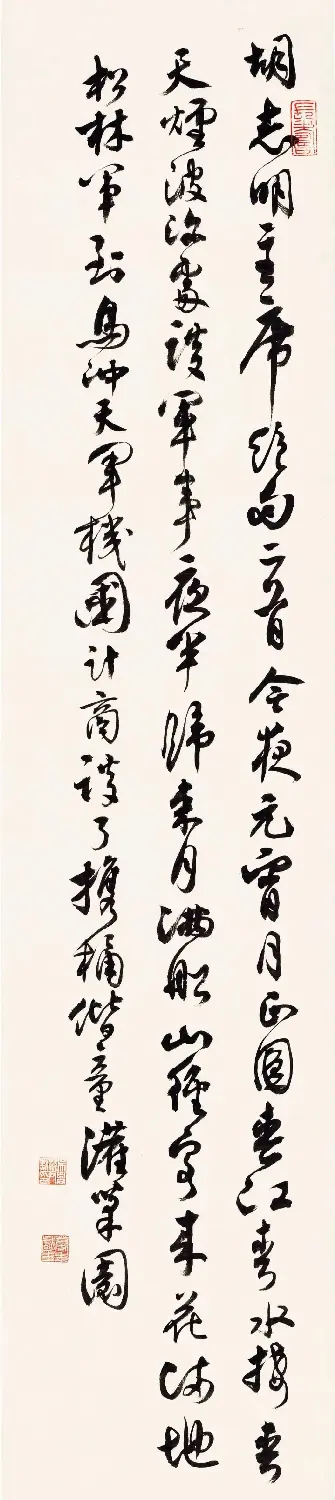 胡志明主席絕句二首今夜元宵月正圓春江春水接春
天煙波深處談軍事夜半歸來月滿船山徑客來花滿地
松林軍到鳥冲天軍機國計商談了携桶偕童灌菜園